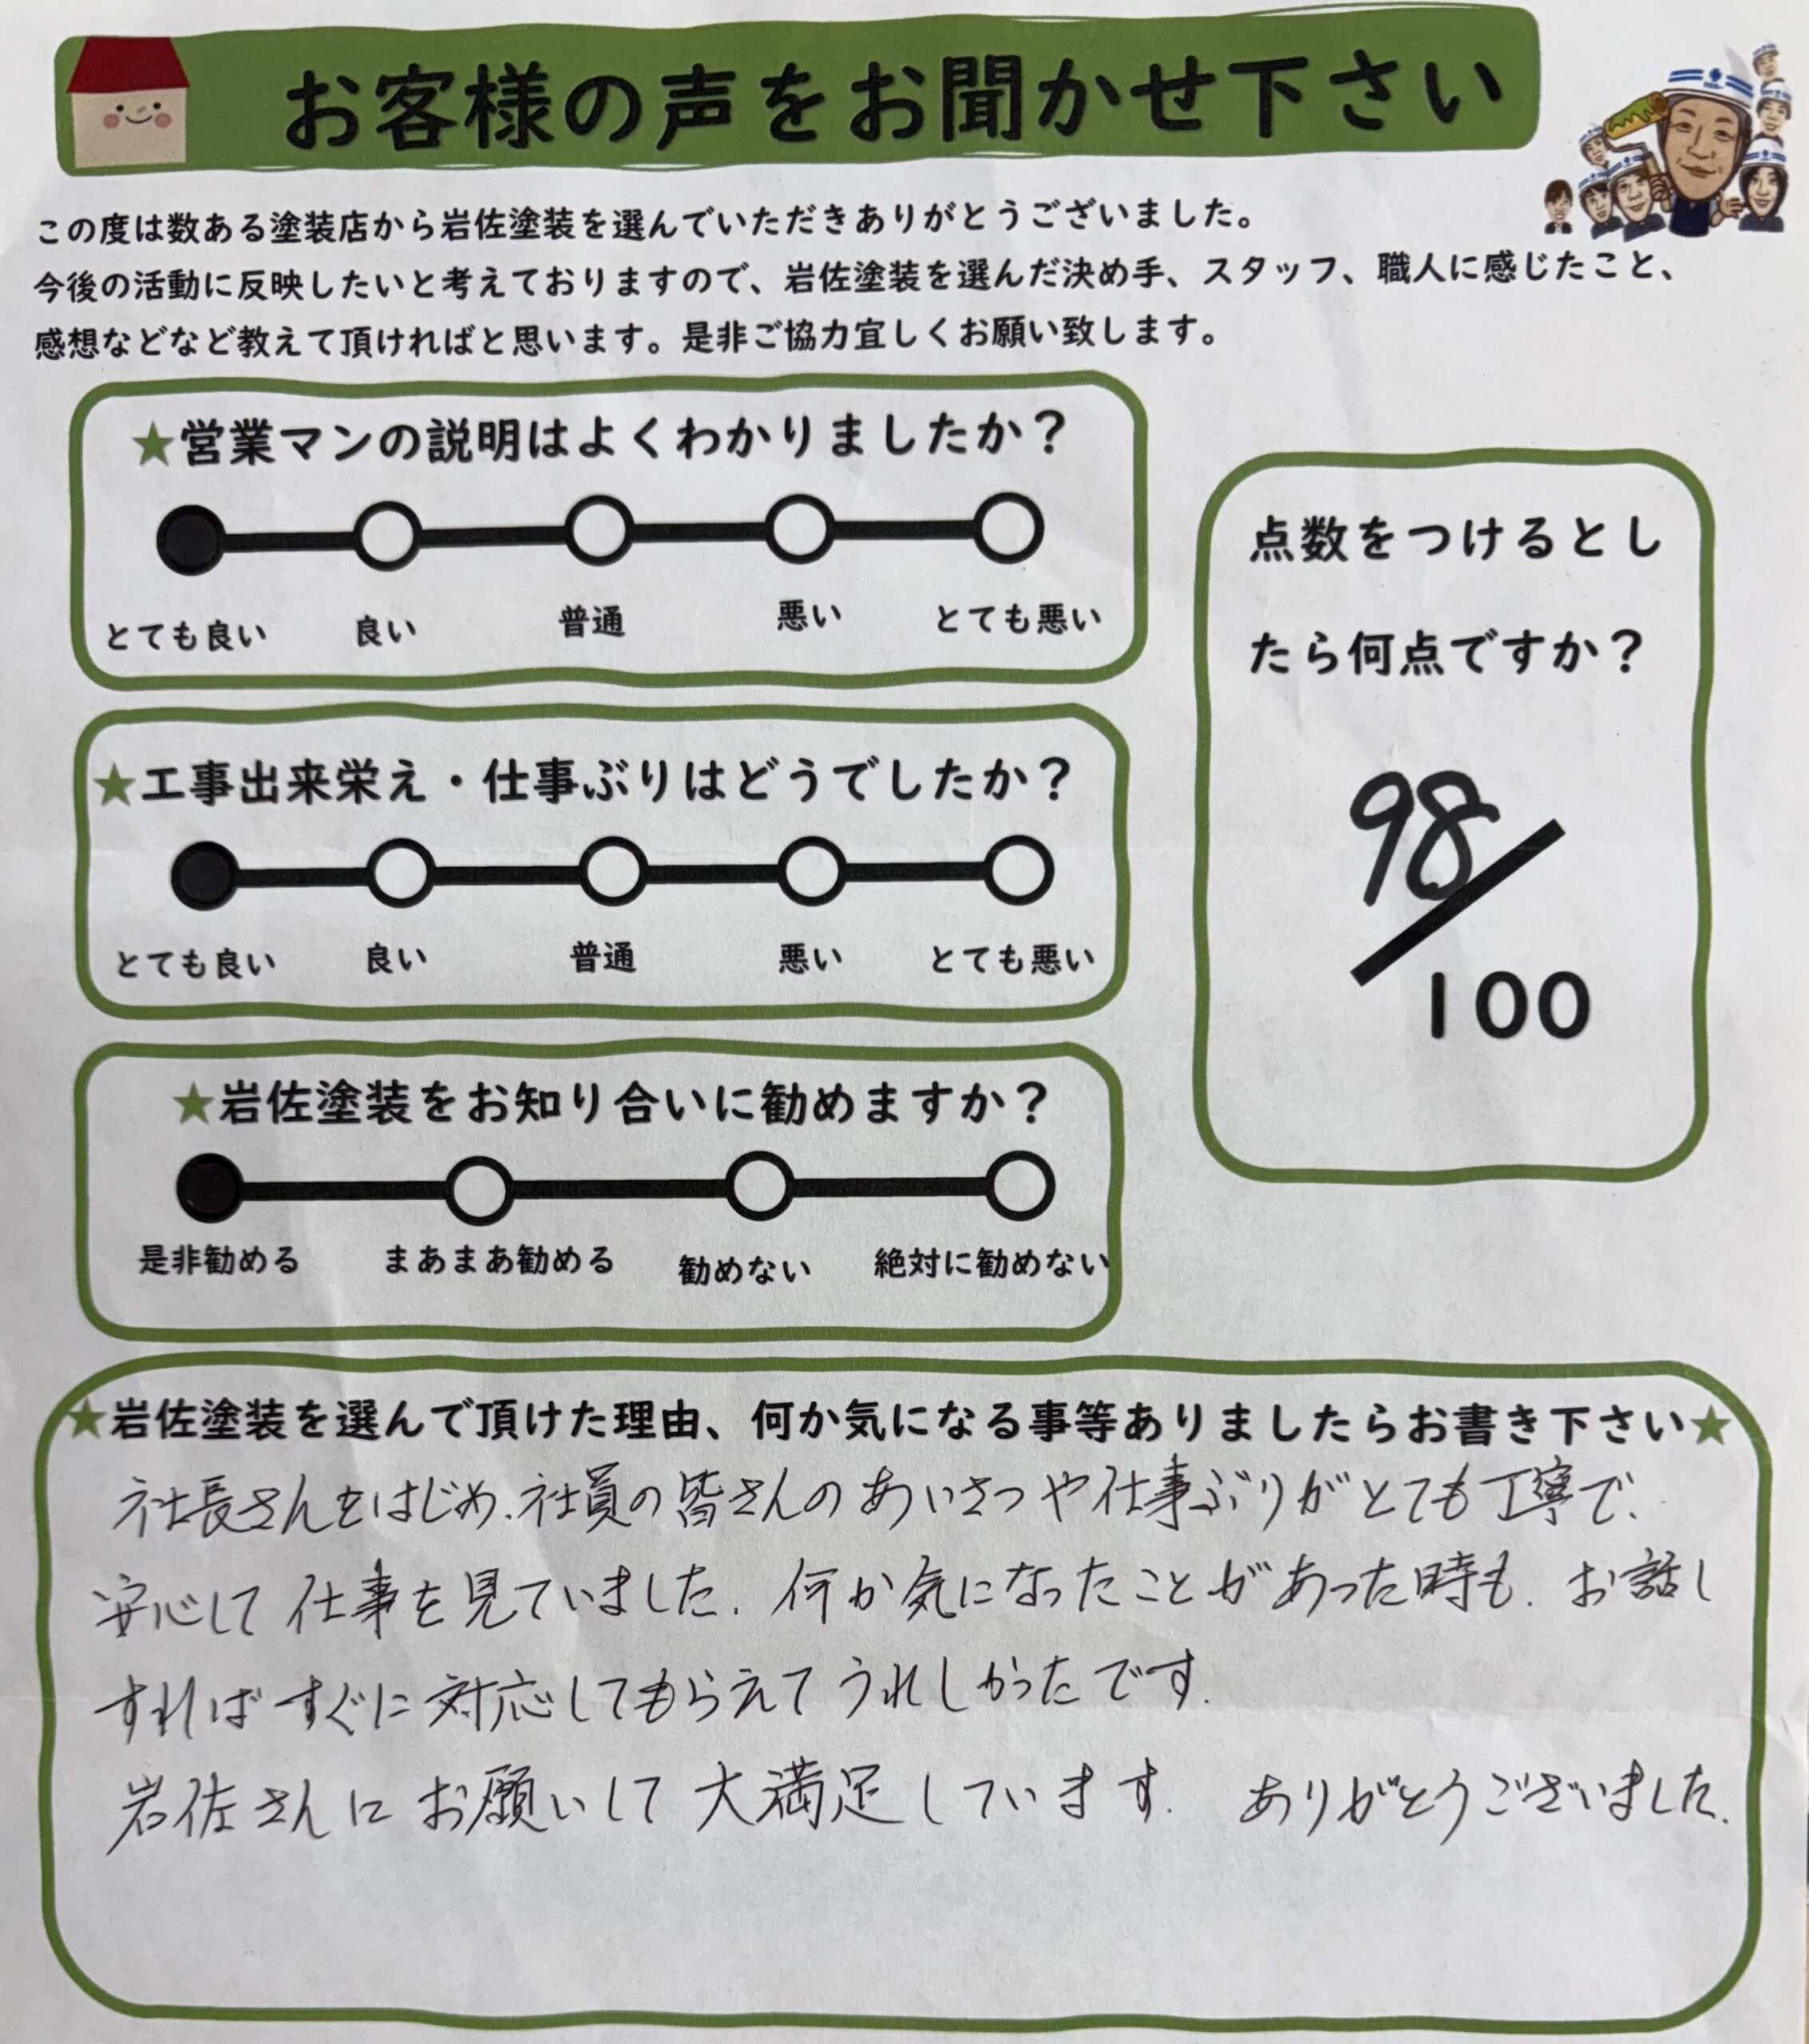 お客様の声をお聞かせ下さい
この度は数ある塗装店から岩佐塗装を選んでいただきありがとうございました。
今後の活動に反映したいと考えておりますので、岩佐塗装を選んだ決め手、スタッフ、職人に感じたこと、
感想などなど教えて頂ければと思います。是非ご協力宜しくお願い致します。
★営業マンの説明はよくわかりましたか？
とても良い 良い 普通 悪い とても悪い
★工事出来栄え・仕事ぶりはどうでしたか？
とても良い 良い 普通 悪い とても悪い
★岩佐塗装をお知り合いに勧めますか？
是非勧める まあまあ勧める 勧めない 絶対に勧めない
点数をつけるとし
たら何点ですか？
98/
100
★岩佐塗装を選んで頂けた理由、何か気になる事等ありましたらお書き下さい★
社長さんをはじめ、社員の皆さんのあいさつや仕事ぶりがとても丁寧で、
安心して仕事を見ていました。何か気になったことがあった時も、お話し
すればすぐに対応してもらえてうれしかったです。
岩佐さんにお願いして大満足しています。 ありがとうございました。